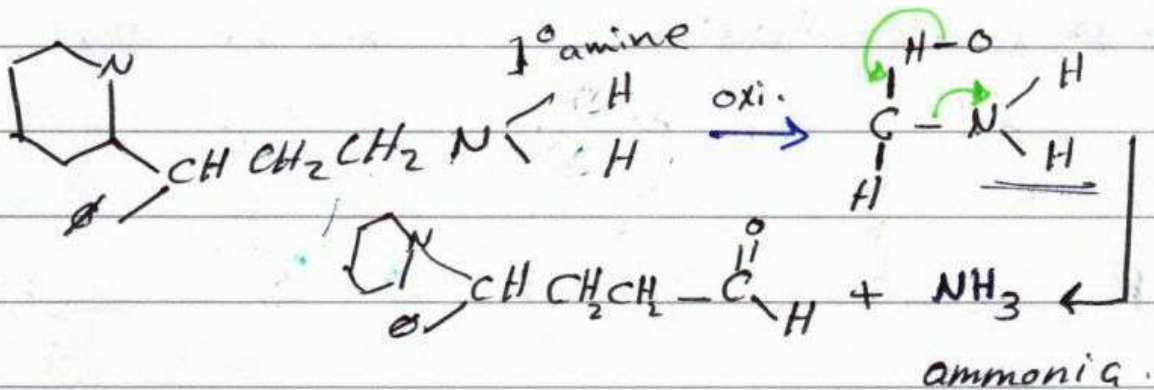 1° amine
N CH CH2 CH2 N H H oxi. H-O C - N H H H
ø
N CH CH2CH2 - C O H + NH3
ø
ammonia.